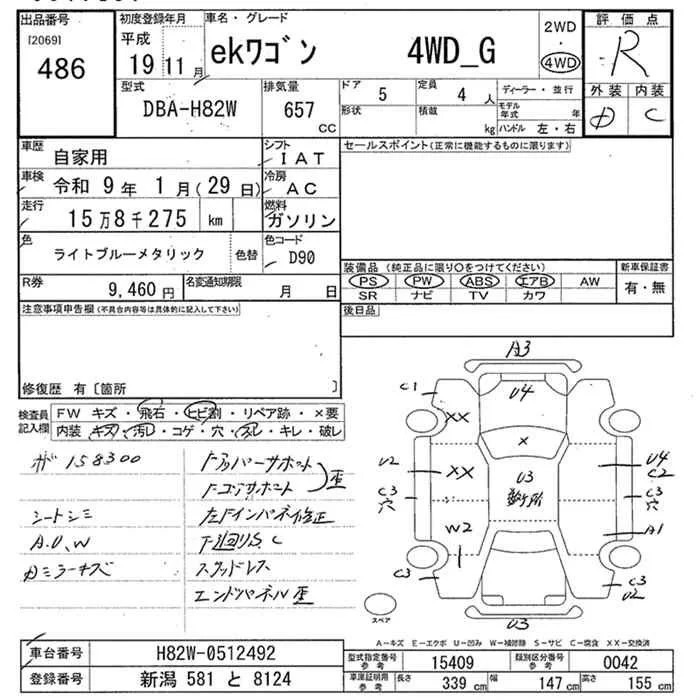 出品番号 初度登録年月 車名・グレード 評価点
[2069] 平成
486 19 11月 ekワゴン 4WD_G 2WD・4WD R
型式 排気量 ドア 5 定員 4人 ディーラー・並行 外装 内装
DBA-H82W 657 CC 形状 積載 kg モデル年式 年 ハンドル 左・右 D C
車歴 自家用 シフト IAT セールスポイント(正常に機能するものに限ります)
車検 令和 9年 1月(29日) 冷房 AC
走行 15万8千275 km 燃料 ガソリン
色 ライトブルーメタリック 色替 色コード D90
R券 9,460円 名変通知期限 月 日
装備品(純正品に限り○をつけてください) 新車保証書
PS PW ABS エアB AW 有・無
SR ナビ TV カワ
注意事項申告欄(不具合内容等は具体的に記入して下さい) 後日品
修復歴 有〔箇所 〕
検査員記入欄 FW キズ・飛石・ヒビ割・リペア跡・×要
内装 キズ・汚レ・コゲ・穴・スレ・キレ・破レ
ガ158300
シートシミ
A.U.W
Aミラーキズ
F コアサポート 歪
左Fインパネ修正
下廻りS.C
スタッドレス
エンドパネル歪
A3
C1 U4
XX
×
U2 XX U3 U4 C2
C3 穴 C3 穴
W2 A1
C3 C3 U2
U3
スペア
A-キズ E-エクボ U-凹み W-補修跡 S-サビ C-腐食 XX-交換済
車台番号 H82W-0512492 型式指定番号 参考 15409 類別区分番号 参考 0042
登録番号 新潟 581 と 8124 車庫証明用 参考 長さ 339cm 幅 147cm 高さ 155cm